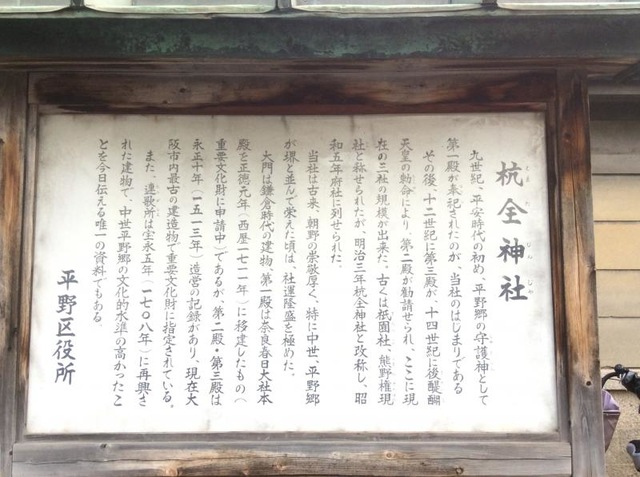 杭全神社
くまたじんじゃ
九世紀、平安時代の初め、平野郷の守護神として
第一殿が奉祀されたのが、当社のはじまりである
その後、十二世紀に第三殿が、十四世紀に後醍醐
天皇の勅命により、第二殿が勧請せられ、ここに現
在の三社の規模が出来た。古くは祇園社、熊野権現
社と称せられたが、明治三年杭全神社と改称し、昭
和五年府社に列せられた。
当社は古来、朝野の崇敬厚く、特に中世、平野郷
が堺と並んで栄えた頃は、社運隆盛を極めた。
大門は鎌倉時代の建物、第一殿は奈良春日大社本
殿を正徳元年(西歴一七一一年)に移建したもの(
重要文化財に申請中)であるが、第二殿・第三殿は
永正十年(一五一三年)造営の記録があり、現在大
阪市内最古の建造物で重要文化財に指定されている。
また、連歌所は宝永五年(一七〇八年)に再興さ
れた建物で、中世平野郷の文化的水準の高かったこ
とを今日伝える唯一の資料でもある
平野区役所